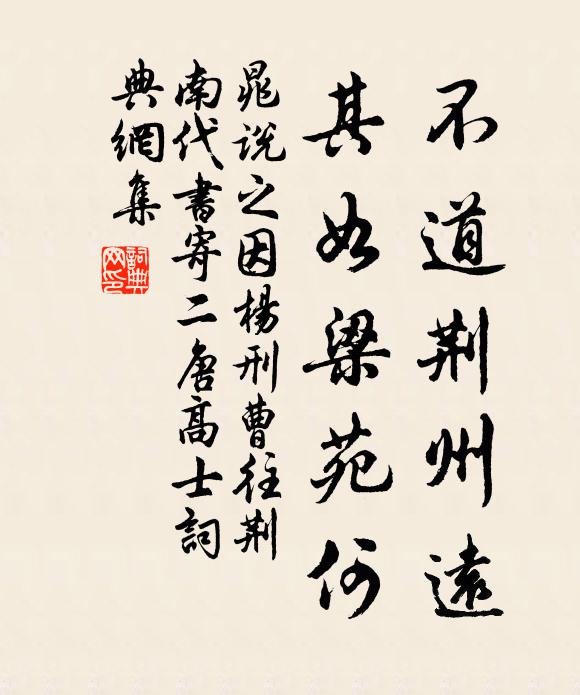 不道荆州遠
其如梁苑何
晁說之因楊刑曹往荆
南代書寄二唐高士詞
典網集
詞典
网印